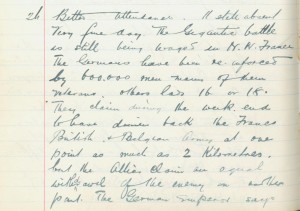 26 Better attendance. 11 still absent
Very fine day. The Gigantic battle
is still being waged in N.W. France
The Germans have been re-inforced
by 600,000 men many of them
veterans, others lads 16 or 18.
They claim during the week end
to have driven back the Franco
British & Belgian Army at one
point as much as 2 Kilometres.
but the Allies claim an equal
withdrawl of the enemy in another
point. The German Emperor says